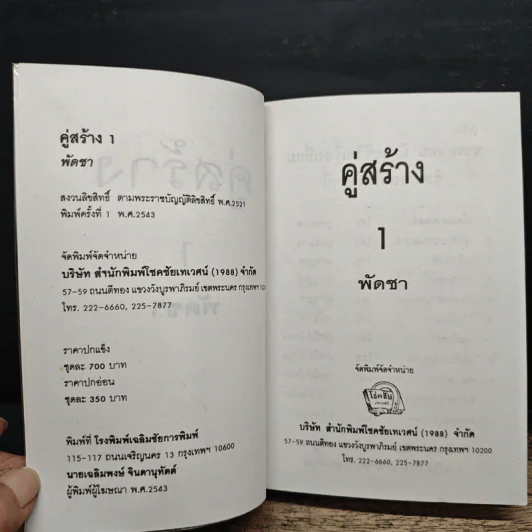 คู่สร้าง 1
พัดชา
สงวนลิขสิทธิ์ ตามพระราชบัญญัติลิขสิทธิ์ พ.ศ.2521
พิมพ์ครั้งที่ 1 พ.ศ.2543
จัดพิมพ์จัดจำหน่าย
บริษัท สำนักพิมพ์โชคชัยเทเวศน์ (1988) จำกัด
57-59 ถนนตีทอง แขวงวังบูรพาภิรมย์ เขตพระนคร กรุงเทพฯ 10200
โทร. 222-6660, 225-7877
ราคาปกแข็ง
ชุดละ 700 บาท
ราคาปกอ่อน
ชุดละ 350 บาท
พิมพ์ที่ โรงพิมพ์เฉลิมชัยการพิมพ์
115-117 ถนนเจริญนคร 13 กรุงเทพฯ 10600
นายเฉลิมพงษ์ จินดานุทัตต์
ผู้พิมพ์ผู้โฆษณา พ.ศ.2543
คู่สร้าง
1
พัดชา
จัดพิมพ์จัดจำหน่าย
โชคชัย
บริษัท สำนักพิมพ์โชคชัยเทเวศน์ (1988) จำกัด
57-59 ถนนตีทอง แขวงวังบูรพาภิรมย์ เขตพระนคร กรุงเทพฯ 10200
โทร. 222-6660, 225-7877